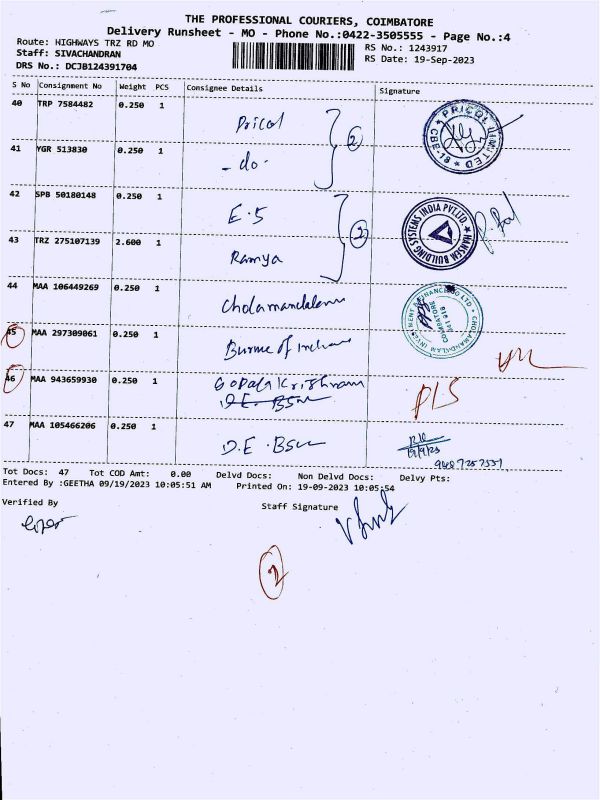 THE PROFESSIONAL COURIERS, COIMBATORE
Delivery Runsheet - MO - Phone No.:0422-3505555 - Page No.:4
Route: HIGHWAYS TRZ RD MO
RS No.: 1243917
Staff: SIVACHANDRAN
RS Date: 19-Sep-2023
DRS No.: DCJB124391704
S No Consignment No Weight PCS Consignee Details Signature
40 TRP 7584482 0.250 1
Pricol
2
PRICOL LIMITED
CBE-18
41 YGR 513830 0.250 1
- do -
42 SPB 50180148 0.250 1
E.5
2
HANSEA BUILDING SYSTEMS INDIA PVT.LTD.
43 TRZ 275107139 2.600 1
Ramya
44 MAA 106449269 0.250 1
Cholamandalam
CHOLAMANDALAM INVESTMENT
COIMBATORE
641 018
45 MAA 297309061 0.250 1
46 MAA 943659930 0.250 1
Gopala Krishnan
D.E. BSNL
47 MAA 105466206 0.250 1
D.E. BSNL
19/9/23
Tot Docs: 47 Tot COD Amt: 0.00 Delvd Docs: Non Delvd Docs: Delvy Pts:
Entered By :GEETHA 09/19/2023 10:05:51 AM Printed On: 19-09-2023 10:05:54
Verified By
Staff Signature
2